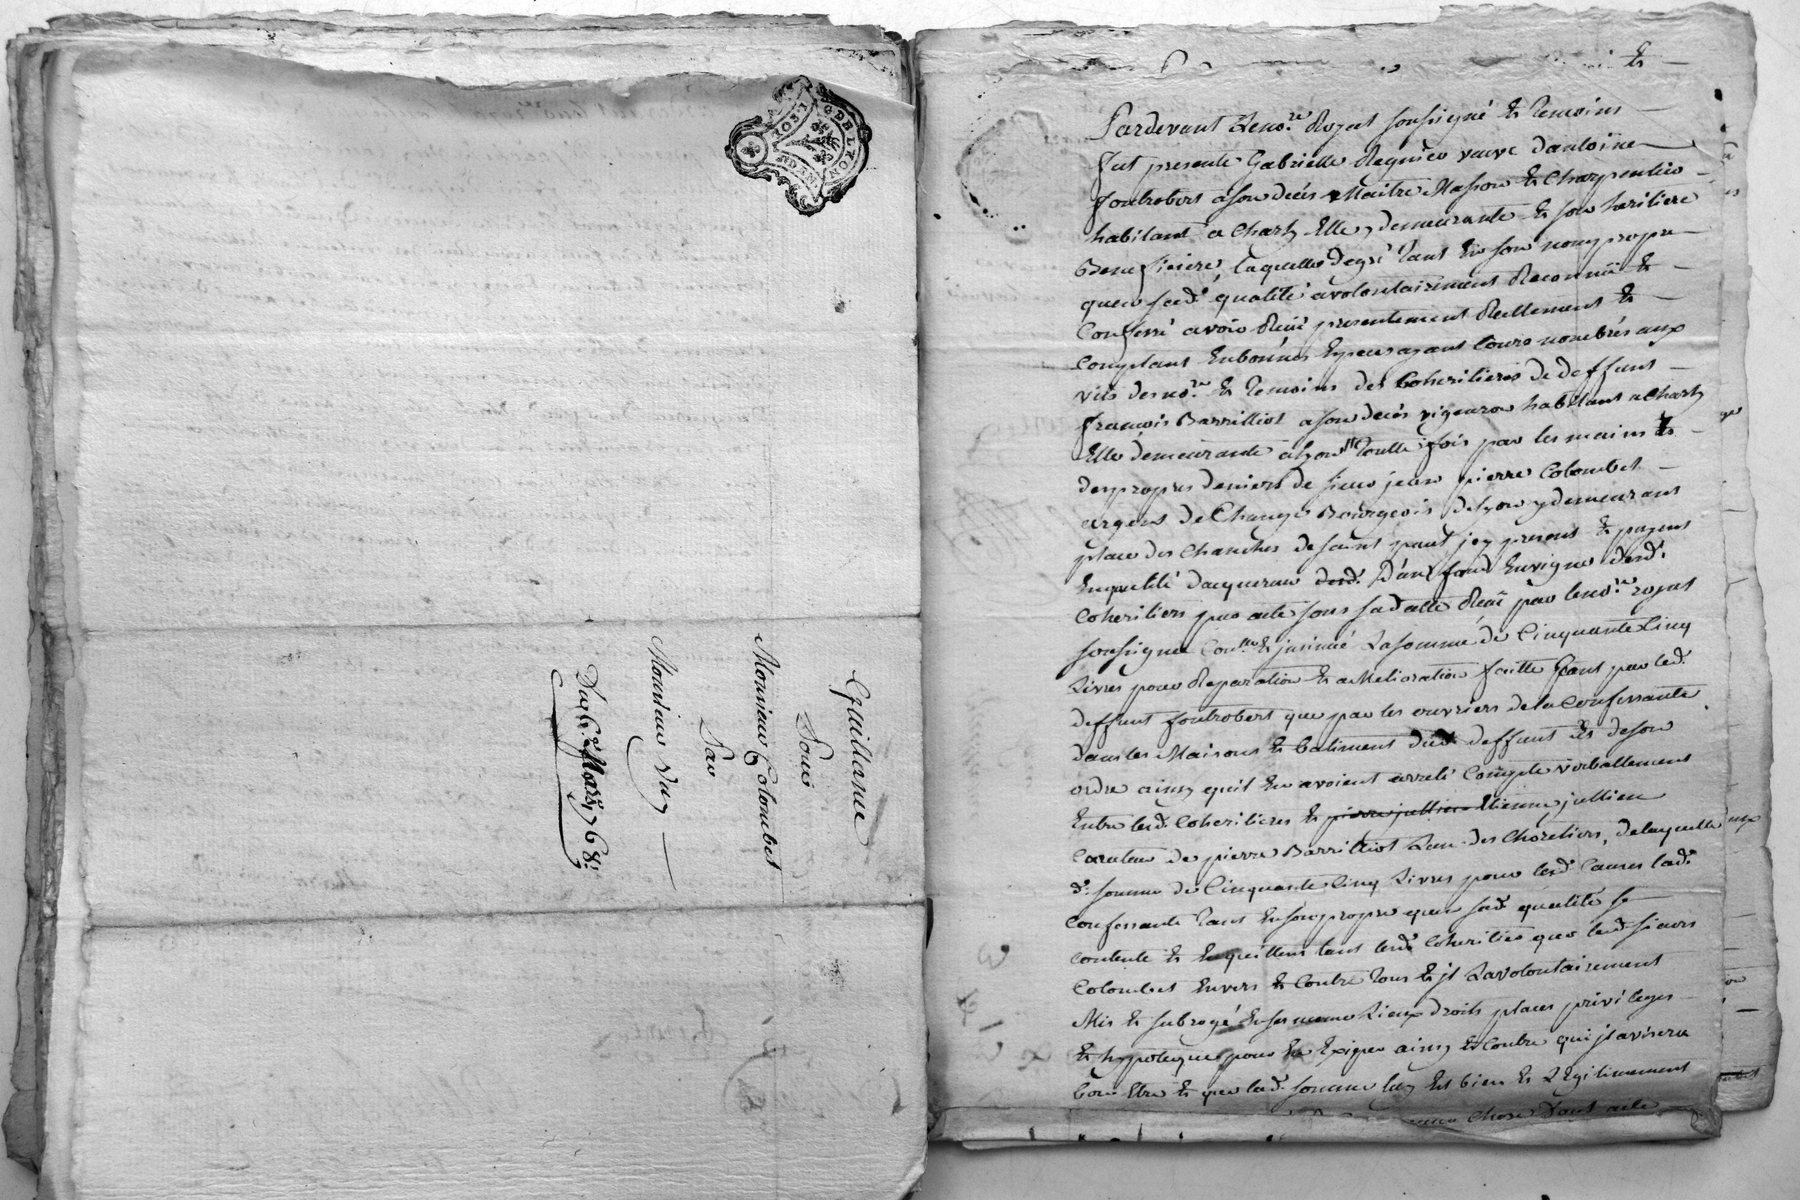 G DE LYON
Quittance
Pour
Monsieur Colombet
Par
Du 6e Mars 1768.
Et
Pardevant Le no.re Royal soussigné Et temoins
fut presente Gabrielle Regnier veuve dantoine
foulrobert a son deces Maitre Masson Et Charpentier
habitant a Charly Elle y demeurante Et son heritiere
Beneficiere, laquelle degré tant En son nom propre
quen sad. qualité a volontairement Reconnu Et
Confessé avoir Recu presentement Reellement Et
Comptant En bonnes Especes ayant Cours nombrés aux
vües du no.re Et temoins des Coheritieres de deffunt
francois Barrilliot a son deces vigneron habitant a Charly
Elle demeurante a Lyon toutte fois par les mains Et
des propres deniers de sieur jean pierre Colombet
argent de Change Bourgeois de Lyon y demeurant
place des Changes de saint paul jcy present Et payent
En qualité dacquereur dud. Dun fond En vigne desd.
Coheritiers par acte sous sa datte Recu par le no.re royal
soussigné Con.lle Et jnsinué La somme de Cinquante Cinq
Livres pour Reparation Et amelioration faitte tant par led.
deffunt foulrobert que par les ouvriers de la Confessante
dans les Maisons Et batiment dud. deffunt Et de son
ordre ainsy quil En avoient arreté Compte verballement
Entre lesd. Coheritieres Et pierre jullien Etienne jullien
Curateur de pierre Barrilliot Lun des Choretiers, de laquelle
d. somme de Cinquante Cinq Livres pour lesd. Causes lad.
Confessante tant En son propre quen sad. qualité se
contente Et En quitte tant lesd. Coherities que led. sieurs
Colombet Envers Et Contre tous Et jl La volontairement
Mis Et subrogé En ses meme Lieux droits places privileges
Et hypoteques pour En Exiger ainsy Et Contre qui jl avisera
bon Etre Et que lad. somme luy Est bien Et Legitimement
chose Dont acte